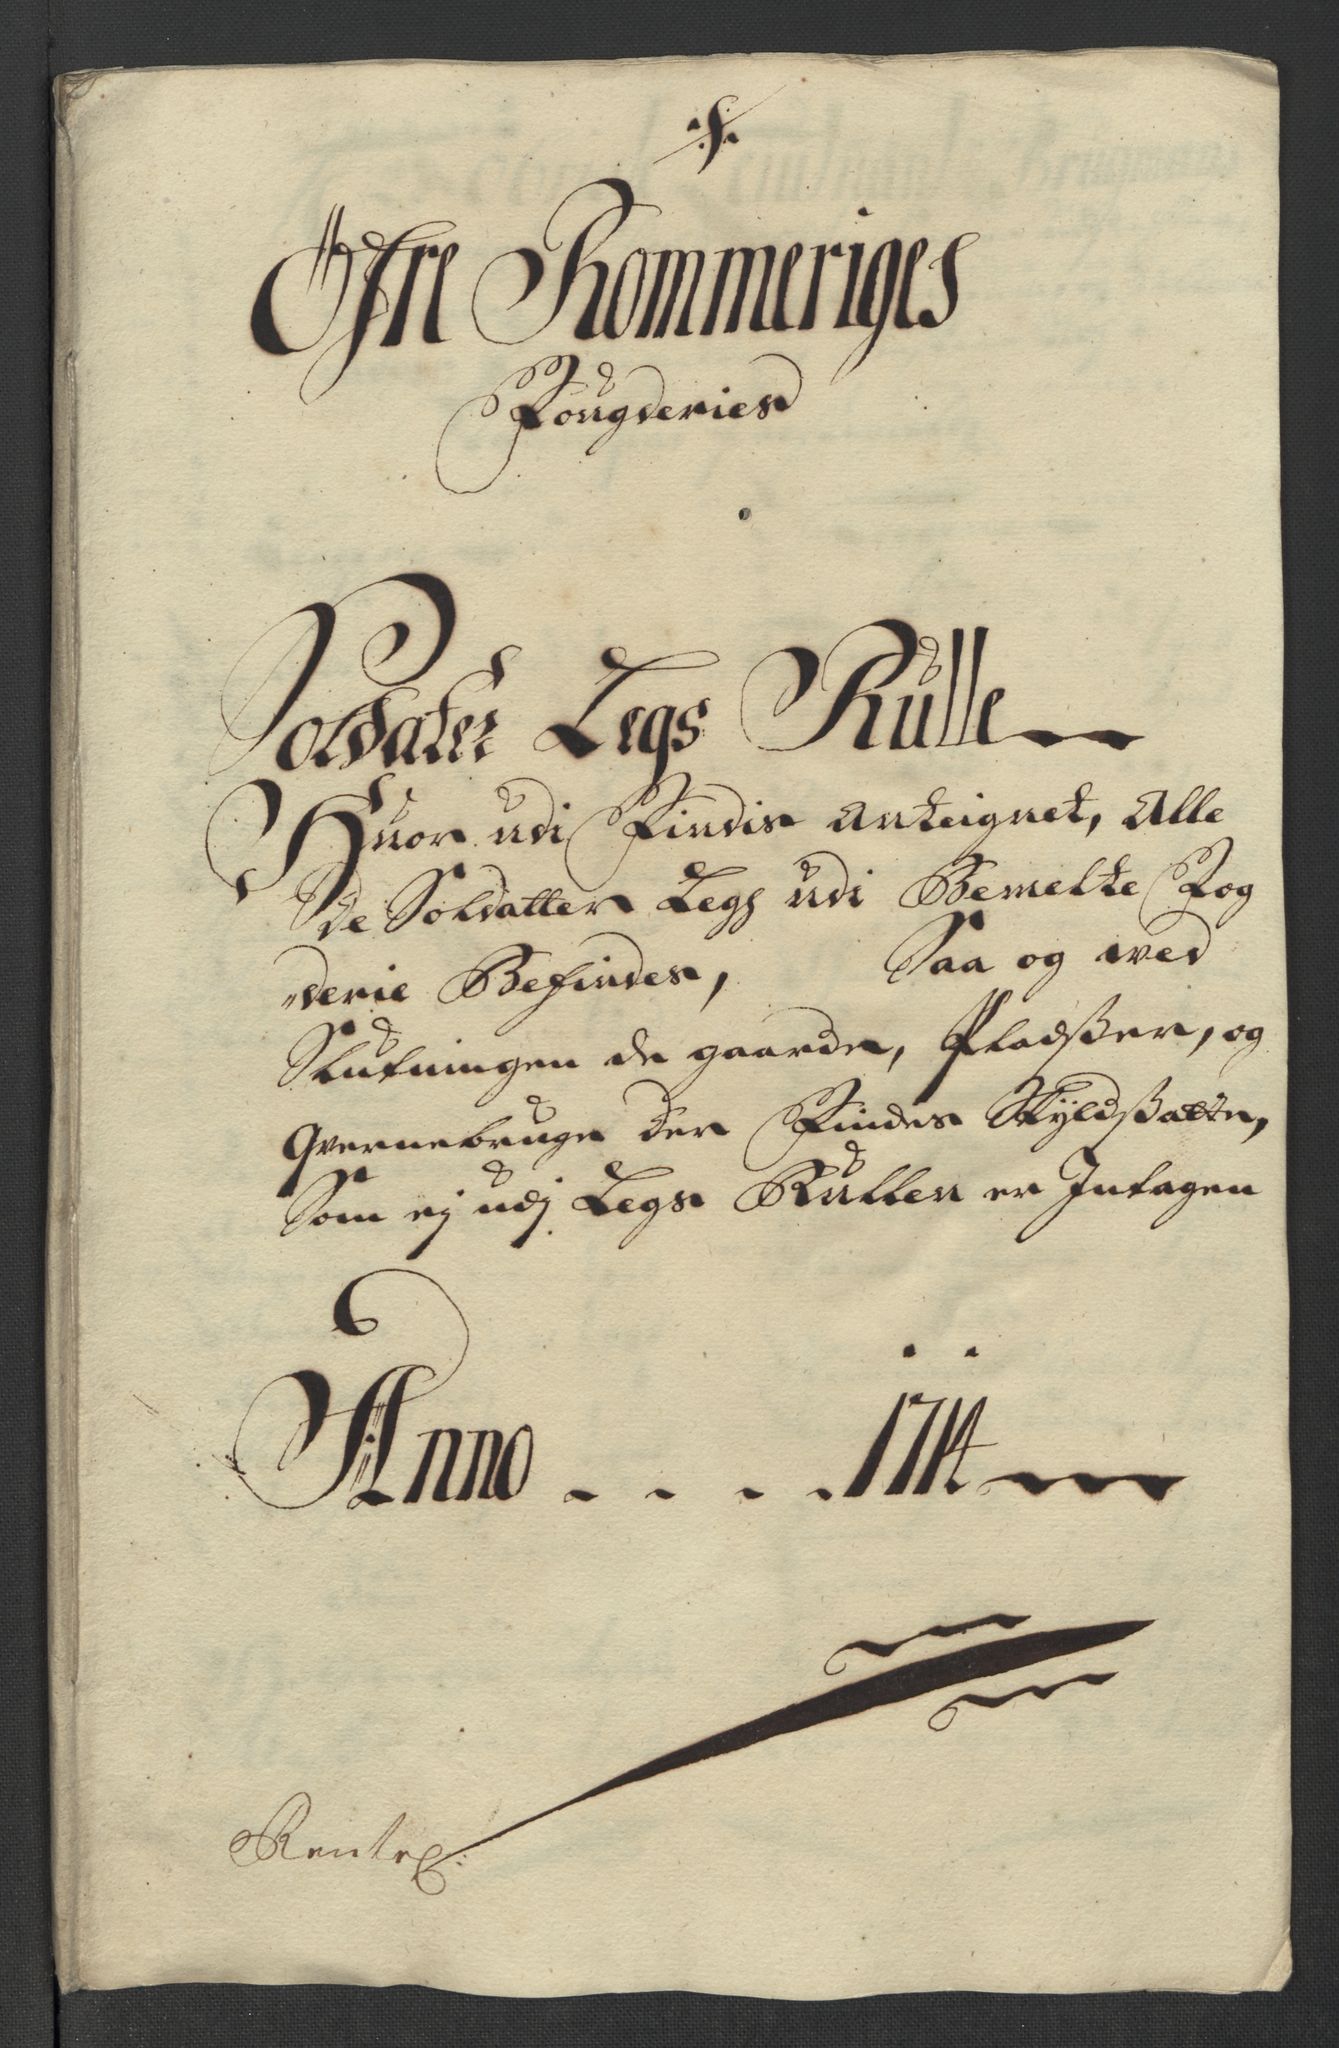 Øfre Rommeriges
Fougderies
Soldater Legs Rulle
Huor udi Findis Anteignet, Alle
De Soldatter Legs udi Bemelte Fog
derie Befindes, Saa og wed
Slutningen de gaarde, Pladßer, og
Qvernebruge der Findes Skyldsatte,
Som ej udj Legs Rullen er Intagen
Anno . . . . 1714